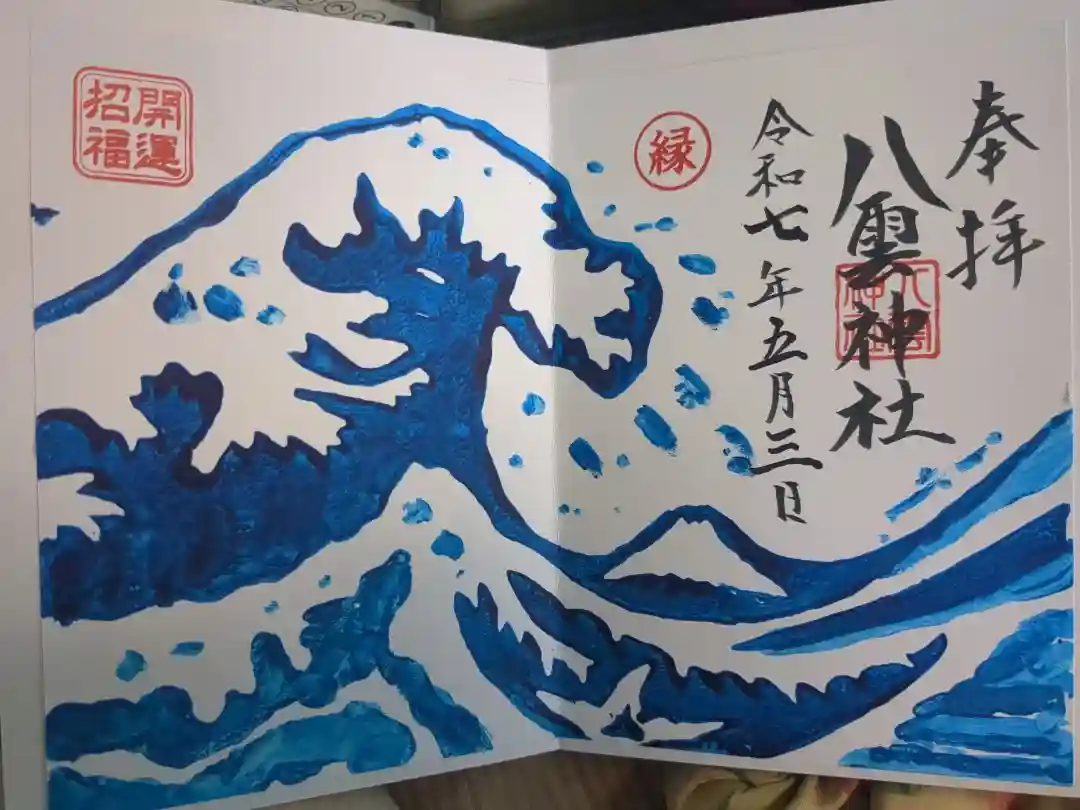 奉拝
八雲神社
八雲
神社
令和七年五月三日
縁
開運
招福